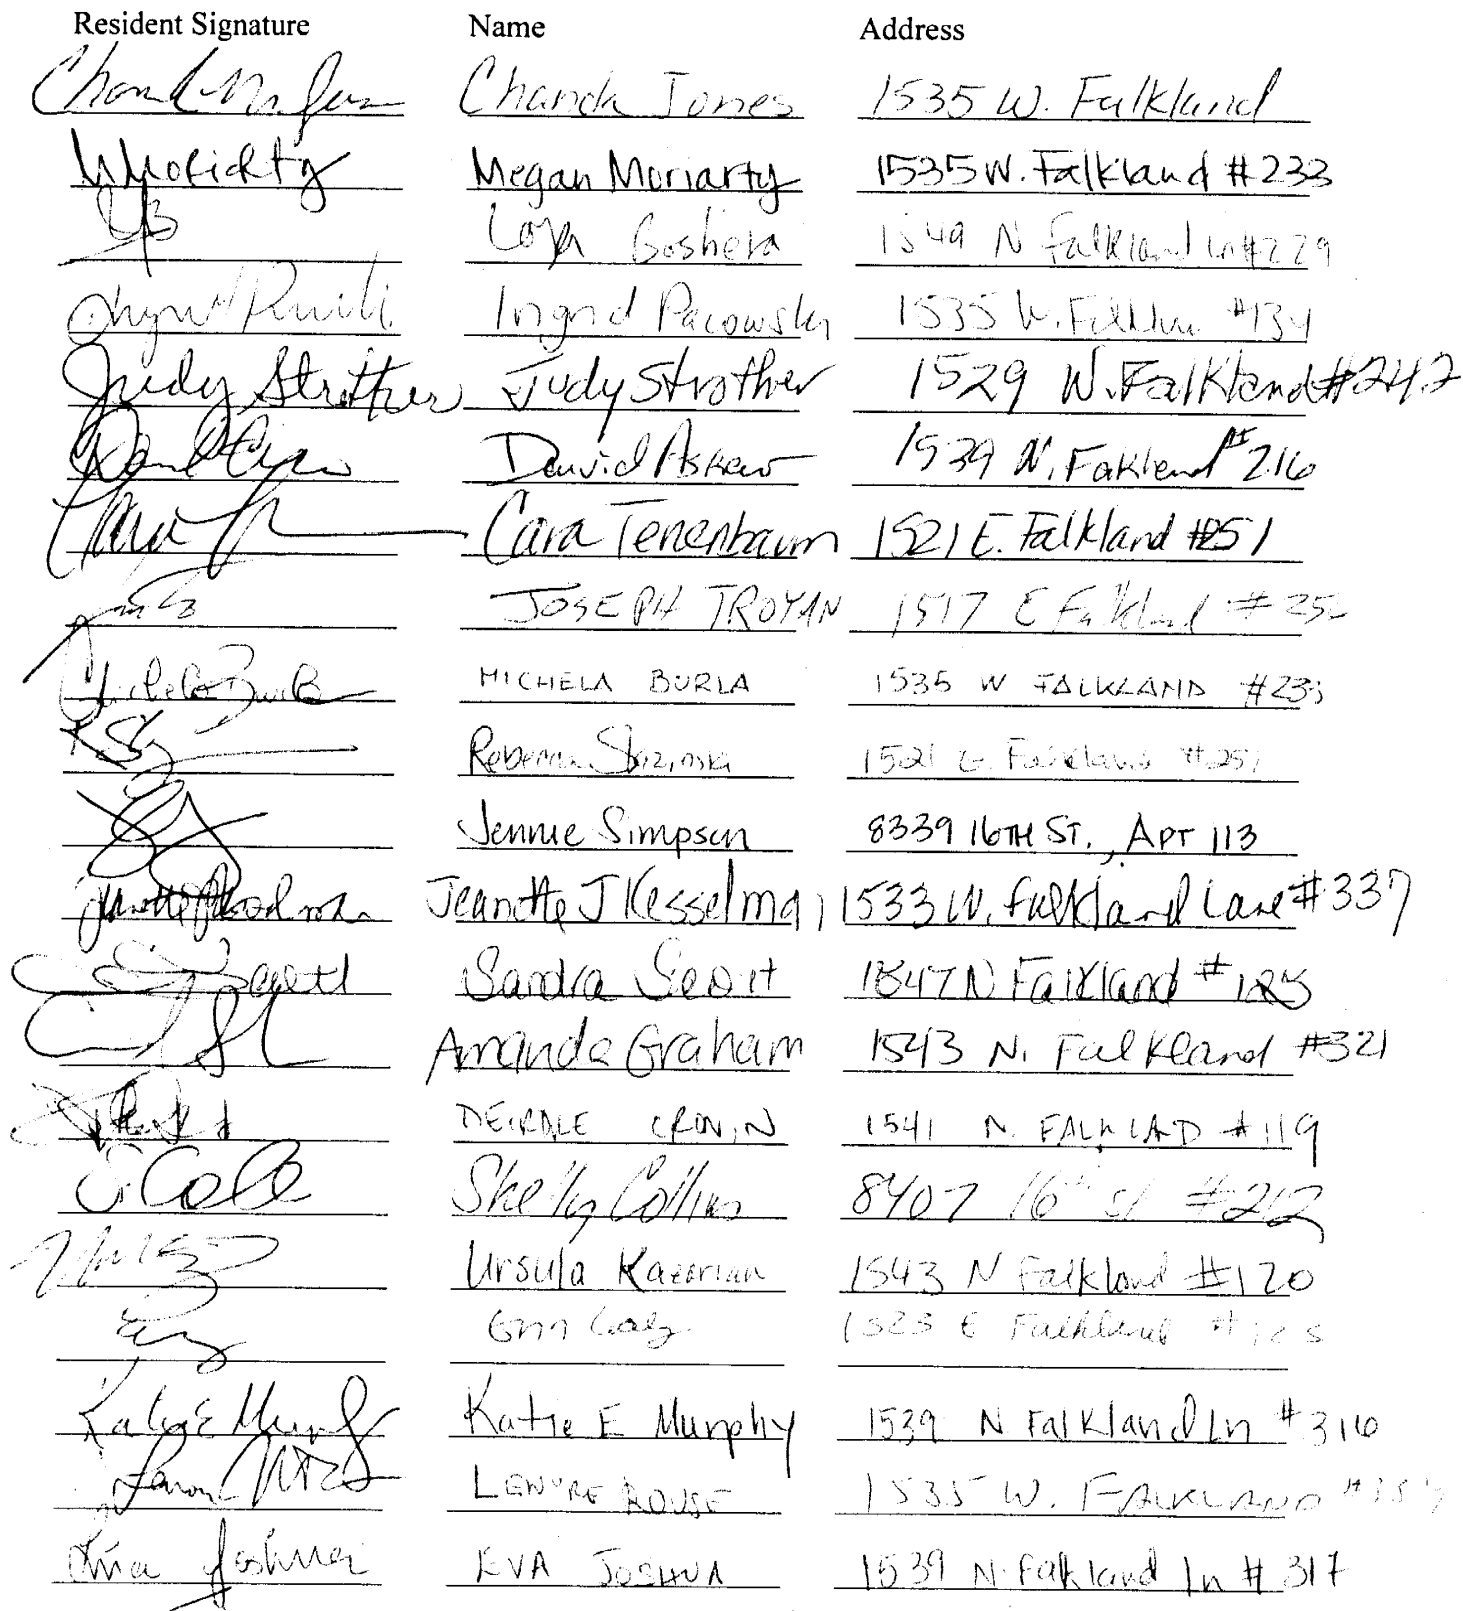 Resident Signature Name Address
Chanda Jones 1535 W. Falkland
Megan Moriarty 1535 W. Falkland #233
1549 N Falkland Ln #229
Ingrid Pacowsky 1535 W. #134
Judy Strother Judy Strother 1529 W. Falkland #242
David Askew 1539 N. Fakland #216
Cara Tenenbaum 1521 E. Falkland #251
JOSEPH TROYAN 1517 E Falkland
MICHELA BURLA 1535 W FALKLAND #233
Rebecca 1521 E. Falkland #251
Jennie Simpson 8339 16TH ST., APT 113
Jeanette J Kesselman 1533 W. Falkland Lane #337
Sandra Scott 1547 N Falkland #125
Amanda Graham 1543 N. Falkland #321
DEIRDRE CRONIN 1541 N. FALKLAD #119
Shelly Collins 8407 16th St #212
Ursula Kazarian 1543 N Falkland #120
1523 E Falkland
Katie E Murphy Katie E Murphy 1539 N Falkland Ln #316
LENORE ROUSE 1535 W. FALKLAND
Eva Joshua EVA JOSHUA 1539 N. Falkland ln #317